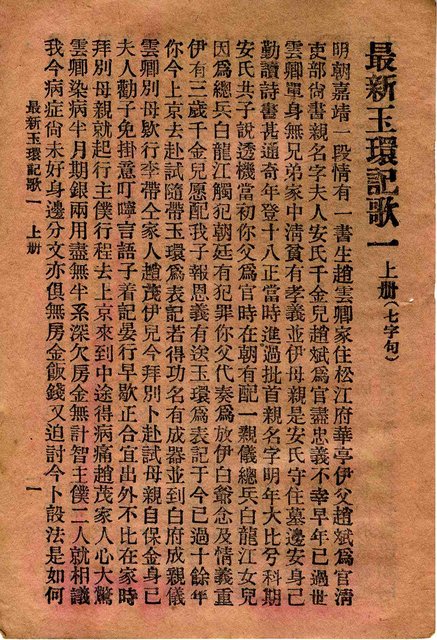 最新玉環記歌一 上册(七字句)
明朝嘉靖一段情有一書生趙雲卿家住松江府華亭伊父趙斌爲官清
吏部尚書親名字夫人安氏千金兒趙斌爲官盡忠義不幸早年已過世
雲卿單身無兄弟家中清貧有孝義並伊母親是安氏守住墓邊安身己
勤讀詩書甚通奇年登十八正當時進過批首親名字明年大比兮科期
安氏共子說透機當初你父爲官時在朝有配一親儀總兵白龍江女兒
因爲總兵白龍江觸犯朝廷有犯罪你父代奏爲放伊白爺念及情義重
伊有三歲千金兒愿配我子報恩義有送玉環爲表記于今已過十餘年
你今上京去赴試隨帶玉環爲表記若得功名有成器並到白府成親儀
雲卿別母歇行李帶仝家人趙茂伊兒今拜別卜赴試母親自保金身己
夫人勸子免掛意叮嚀言語子着記晏行早歇正合宜出外不比在家時
拜別母親就起行主僕行程去上京來到中途得病痛趙茂家人心大驚
雲卿染病半月期銀兩用盡無半系深欠房金無計智主僕二人就相議
我今病症尚未好身邊分文亦俱無房金飯錢又迫討今卜設法是如何
最新玉環記歌一 上册
一